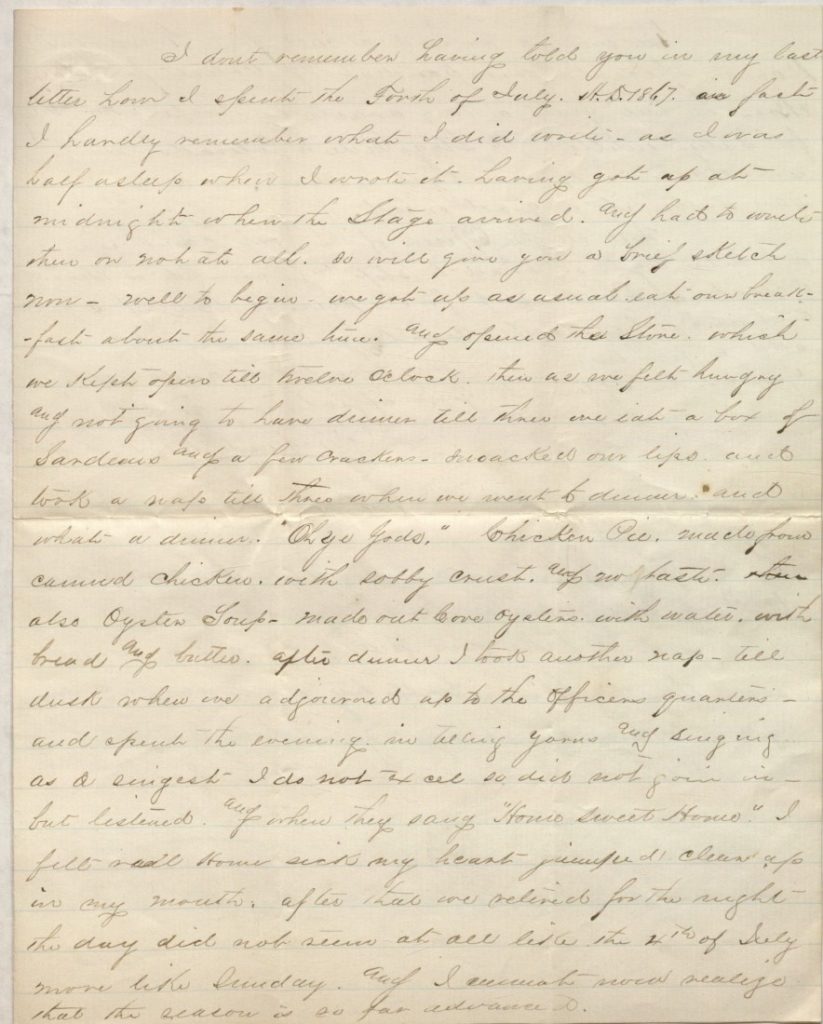 I dont remember having told you in my last
letter how I spent the Forth of July. A.D. 1867. in fact
I hardly remember what I did write - as I was
half asleep when I wrote it. having got up at
midnight when the Stage arrived. and had to write
then or not at all. so will give you a brief sketch
now - well to begin - we got up as usual. eat our break-
-fast about the same time. and opened the Store. which
we kept open till twelve Oclock. then as we felt hungry
and not going to have dinner till three we eat a box of
Sardeens and a few crackers - smacked our lips. and
took a nap till three when we went to dinner. and
what a dinner. "Oh ye Gods." Chicken Pie. made from
canned chicken. with sobby crust. and no taste.
also Oyster Soup - made out Cove Oysters. with water. with
bread and butter. after dinner I took another nap - till
dusk when we adjourned up to the Officers quarters -
and spent the evening. in telling yarns and singing
as a singest I do not excel so did not join in -
but listened. and when they sang "Home Sweet Home." I
felt real home sick my heart jumped clean up
in my mouth. after that we retired for the night
the day did not seem at all like the 4th of July
more like Sunday. and I cannot now realize
that the season is so far advanced.